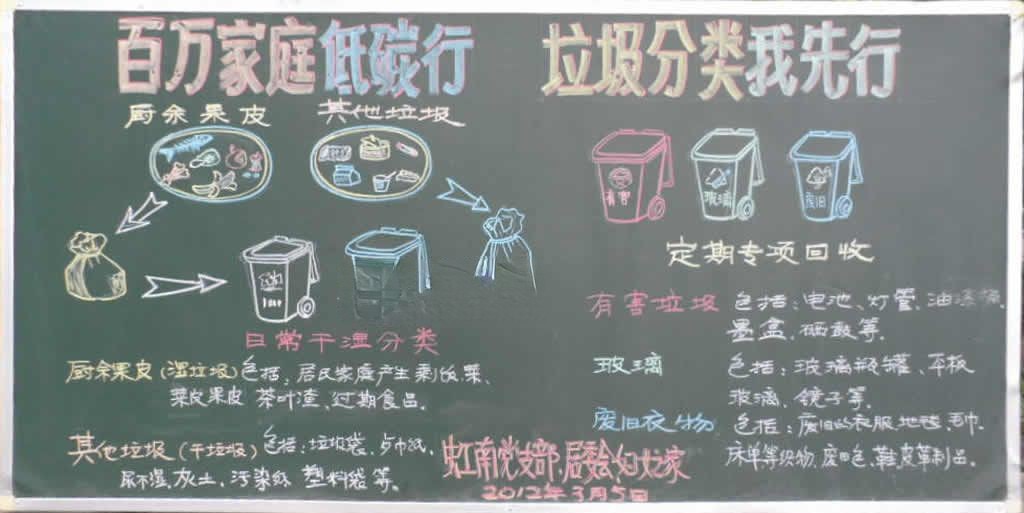 百万家庭低碳行 垃圾分类我先行
厨余果皮 其他垃圾
有害 玻璃 废旧
定期专项回收
日常干湿分类
厨余果皮(湿垃圾)包括:居民家庭产生剩饭菜、
菜皮果皮 茶叶渣、过期食品。
其他垃圾(干垃圾)包括:垃圾袋、纸巾纸、
尿不湿、灰土、污染纸 塑料袋等。
有害垃圾 包括:电池、灯管、油漆桶、
墨盒、硒鼓等。
玻璃 包括:玻璃瓶罐、平板
玻璃、镜子等。
废旧衣物 包括:废旧的衣服、地毯、毛巾、
床单等织物、废旧包、鞋、皮革制品。
虹南党支部、居委会、妇女家
2012年3月5日